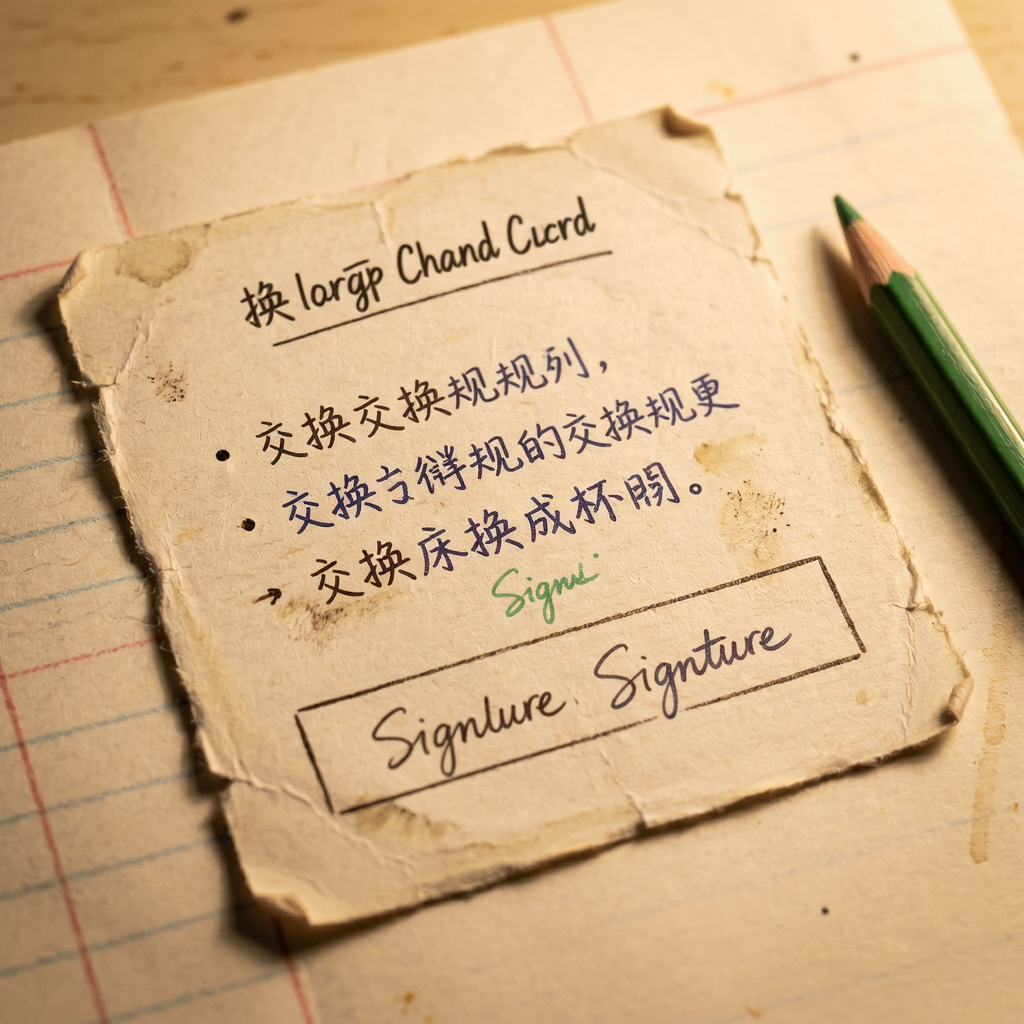 换 largp Chand Cucrd
交换交换规规列，
交换 规的交换规更
交换床换成杯
Signs
Signlure Signture